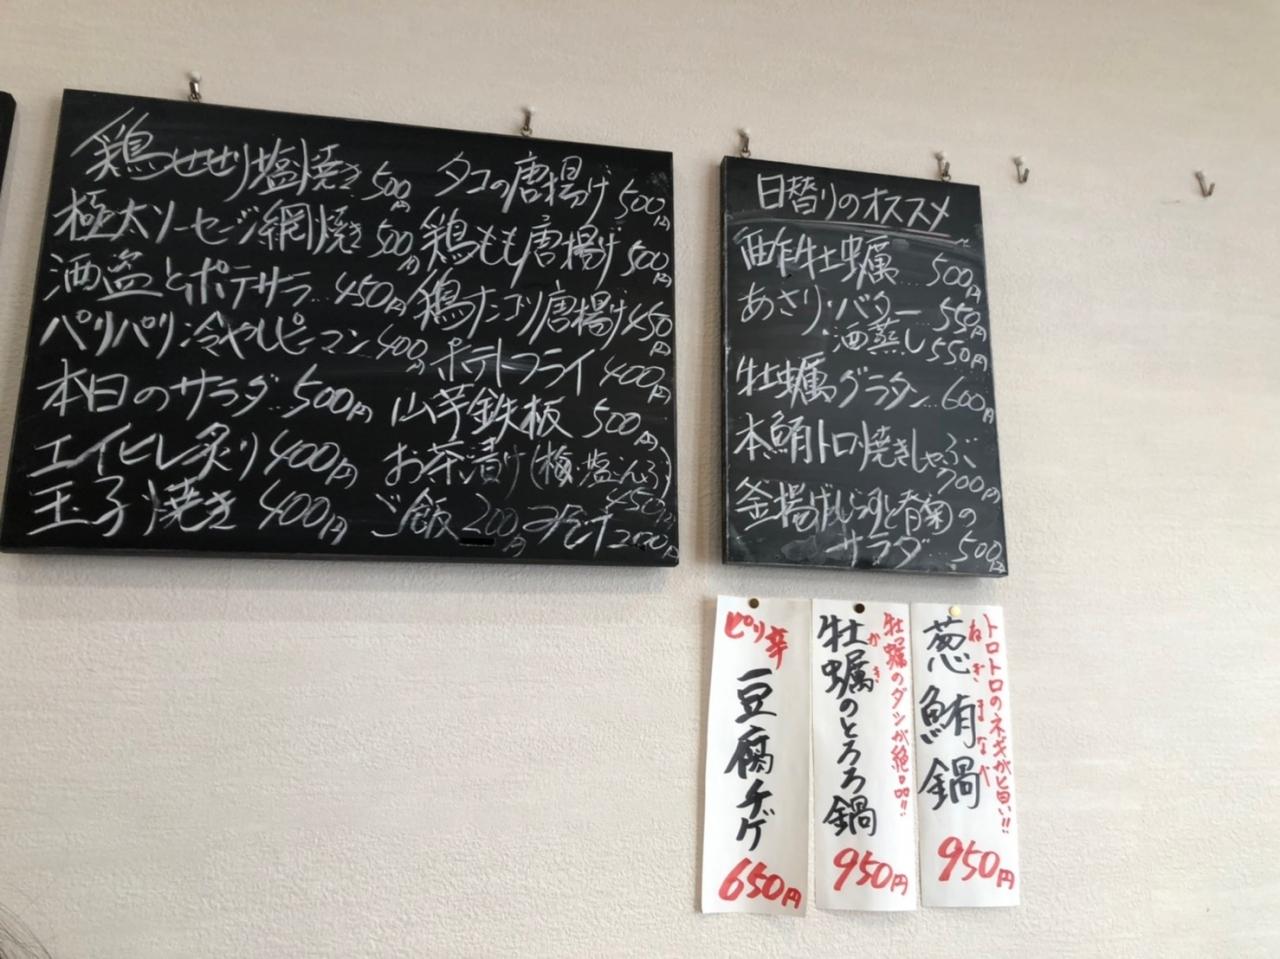 鶏せせり塩焼き 500円
極太ソーセージ網焼き 500円
酒盗とポテサラ…450円
パリパリ冷やしピーマン 400円
本日のサラダ…500円
エイヒレ炙り 400円
玉子焼き 400円
タコの唐揚げ 500円
鶏もも唐揚げ 500円
鶏ナンコツ唐揚げ 450円
ポテトフライ 400円
山芋鉄板 500円
お茶漬け(梅・塩こんぶ)
450円
ご飯 200円 みそ汁 200円
日替りのオススメ
酢牡蠣 500円
あさり・バター 550円
酒蒸し 550円
牡蠣グラタン…600円
本鮪トロ焼きしゃぶ
700円
釜揚げしらすと有菊の
サラダ 500円
トロトロのネギが旨い!!
葱鮪鍋
ねぎまなべ
950円
牡蠣のダシが絶品!!
牡蠣のとろろ鍋
かき
950円
ピリ辛
豆腐チゲ
650円